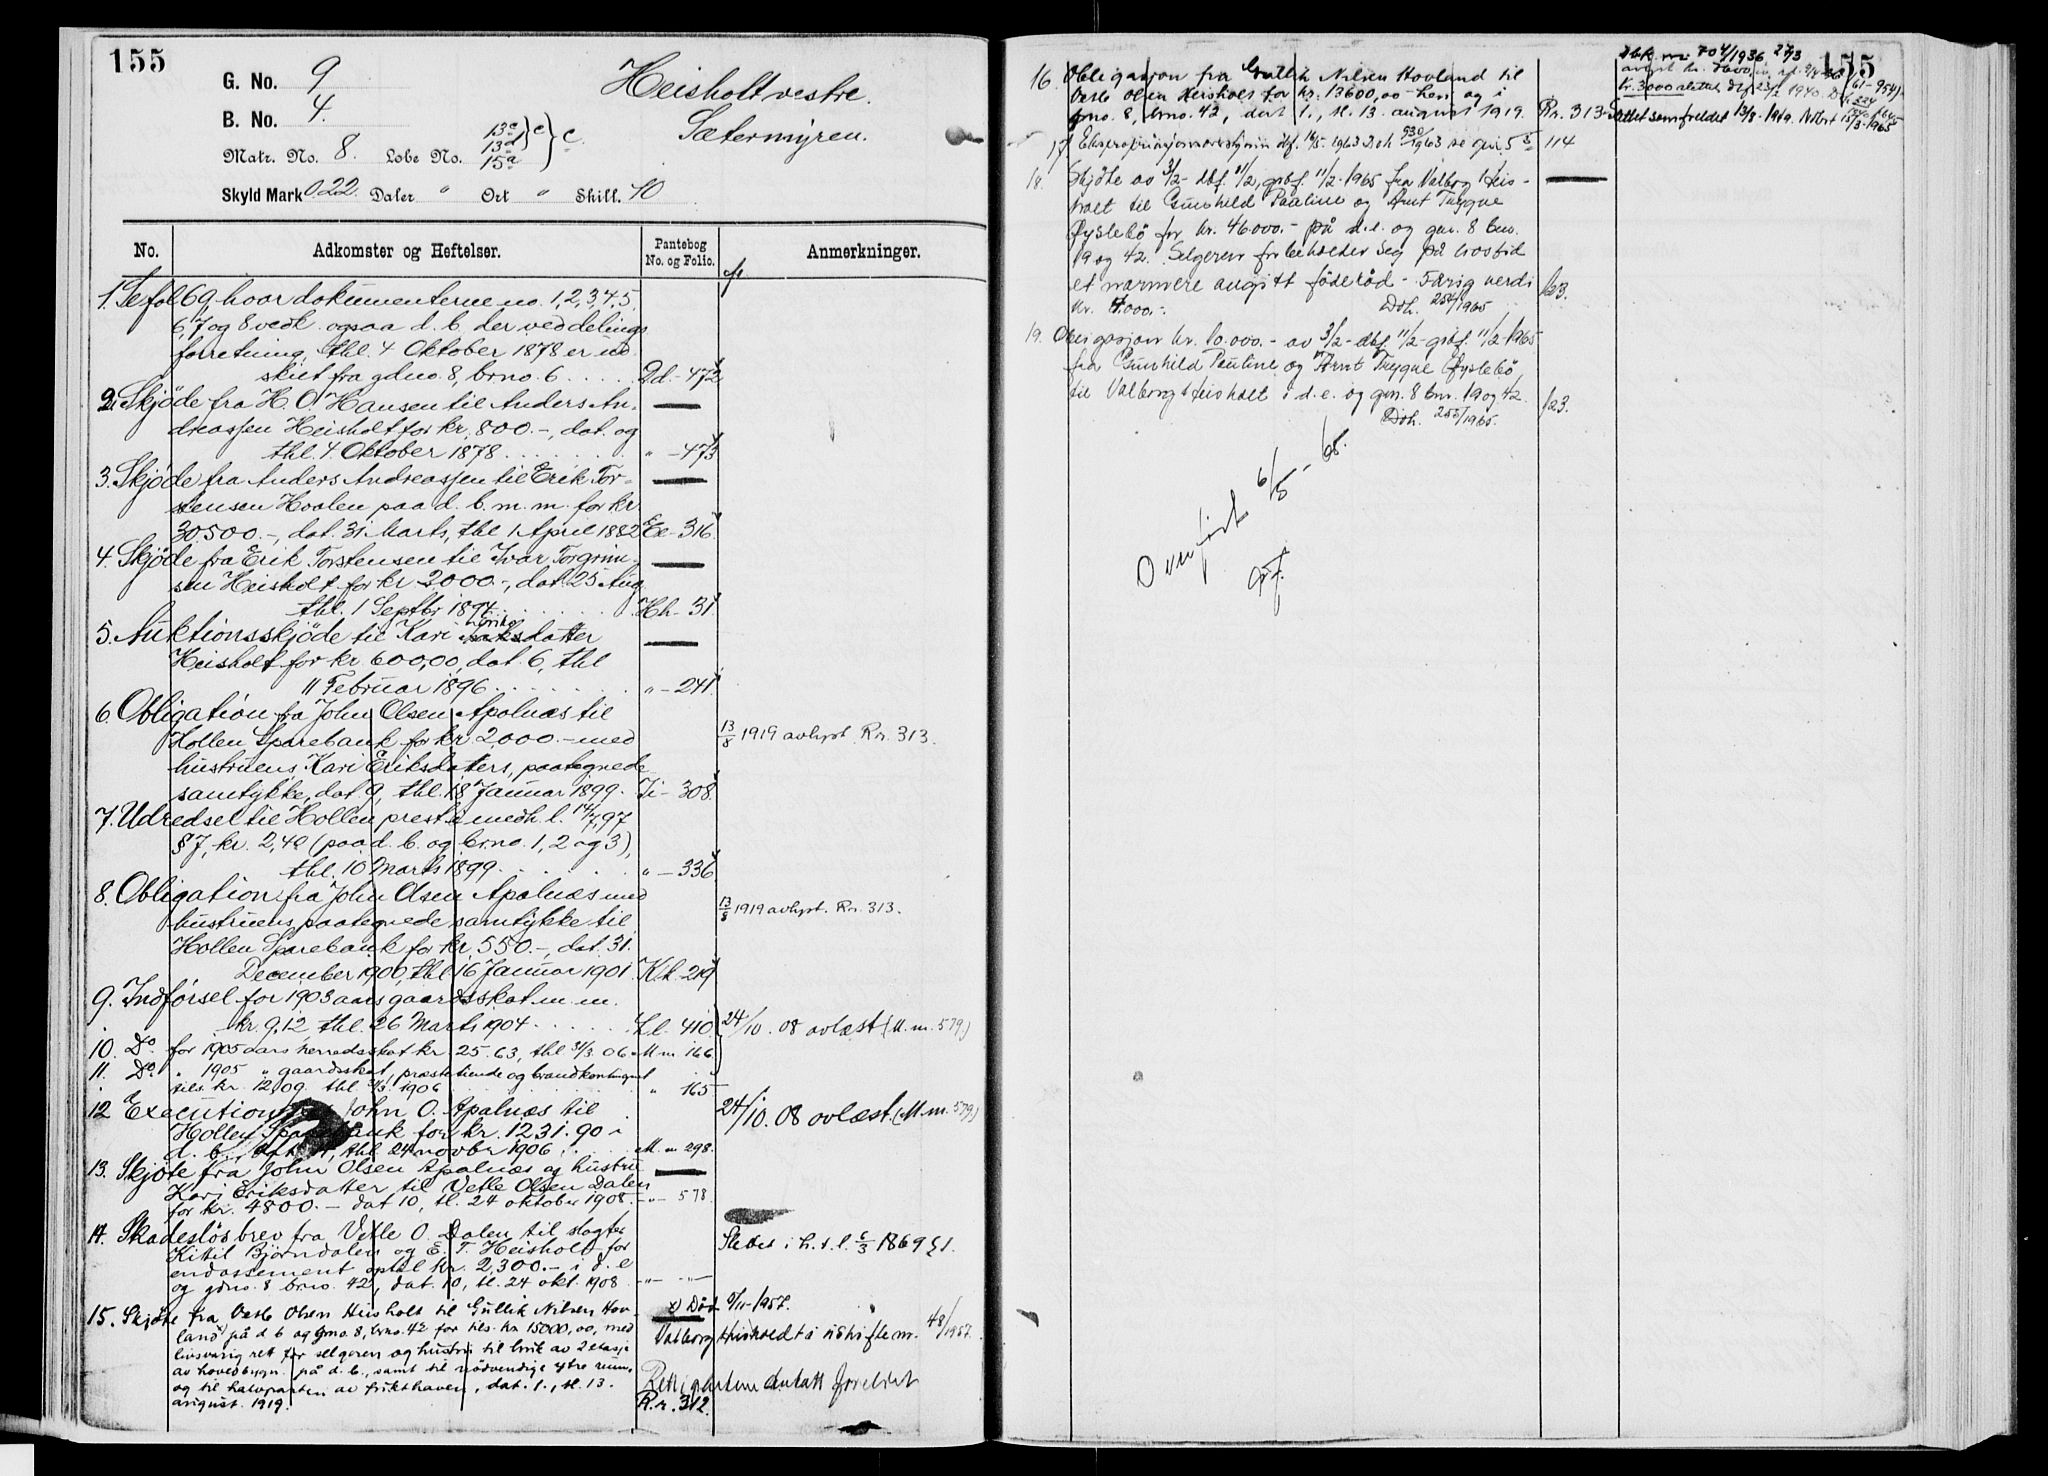 155
G. No. 9
B. No. 4.
Matr. No. 8. Løbe No. 13c 13d 15a } c } c
Skyld Mark 0.22. Daler " Ort " Skill. 40
Heisholt vestre.
Sætermyren.
No. Adkomster og Heftelser. Pantebog No. og Folio. Anmerkninger.
1. Se fol. 69, hvor dokumenterne no. 1, 2, 3, 4, 5,
6, 7 og 8 vedk. ogsaa d. b. der ved delings
forretning, thl. 4 Oktober 1878 er ud
skilt fra gdno. 8, brno. 6 . . . . Dd - 472
2. Skjöde fra H. O. Hansen til Anders An-
dreassen Heisholt for kr. 800.-, dat. og
thl. 4 Oktober 1878 . . . . . . . " - 473
3. Skjöde fra Anders Andreassen til Erik Tor-
stensen Hvalen paa d. b. m. m. for kr
30.500.-, dat. 31 Marts, thl 1 April 1882 Ee - 316.
4. Skjöde fra Erik Torstensen til Ivar Torgrim-
sen Heisholt for kr 2000.-, dat. 25 Aug
thl. 1 Septbr 1894 . . . . . . . Hh - 31
5. Auktionsskjöde til Kari Eriksdatter
Heisholt for kr 600,00, dat. 6, thl
11 Februar 1896 . . . . . . . " - 241
6. Obligation fra John Olsen Apalnæs til
Hollen Sparebank for kr 2,000.- med
hustruens Kari Eriksdatters, paategnede
samtykke, dat 9, thl. 18 Januar 1899. Ii - 308.
13/8 1919 avlyst. Rr. 313.
7. Udredsel til Hollen prest i medh. l. 14/7 97
§ 7, kr. 2,40 (paa d. b. og brno. 1, 2 og 3),
thl. 10 Marts 1899 . . . . . . " - 336
8. Obligation fra John Olsen Apalnæs med
hustruens paategnede samtykke til
Hollen Sparebank for kr. 550.-, dat. 31.
December 1900, thl 16 Januar 1901. Kk - 219
13/8 1919 avlyst. Rr. 313.
9. Indförsel for 1903 aars gaardsskat m. m.
kr. 9,12 thl. 26 Marts 1904 . . . . . Ll. 410. 24/10. 08 avlæst (M. m. 579.)
10. Do. for 1905 aars herredsskat kr. 25.63, thl 31/3 06 M m 166
11. Do. " 1905 " gaardsskat, præstetiende og brandkontingent
tils. kr. 12.09 thl. 31/3 1906 . . . . " 165
12 Execution John O. Apalnæs til
Hollen Sparebank for kr. 1231.90 i
d. b. thl 24 novbr 1906 . . . M. m 298.
24/10. 08 avlæst (M. m. 579)
13. Skjöte fra John Olsen Apalnæs og hustru
Kari Eriksdatter til Vetle Olsen Dalen
for kr. 4800.- dat 10, tl. 24 oktober 1908. - " - 578.
14. Skadeslösbrev fra Vetle O. Dalen til slagter
Kittil Björndalen og E. T. Heisholt for
endossement optil kr. 2,300.- i d. e
og gdno. 8 brno. 42, dat. 10, tl. 24 okt. 1908 - " - - " -
Slettes i h. t. l. 1869 § 1.
15. Skjöte fra Vetle Olsen Heisholt til Gullik Nilsen Hov-
land x) på d b og gno. 8, brno. 42 for tils. kr 15000,00, med
livsvarig ret for selgeren og hustru til bruk av 2 etasje
av hovedbygn. på d. b., samt til nödvendige ytre rum,
og til halvparten av frukthaven, dat. 1., tl. 13.
august. 1919. R. r. 312.
x) Död 9/11-1957.
Valborg Heisholdt i uskifte m. 48/1957.
Rettigheten antatt foreldet
155
16. Obligasjon fra Gullik Nilsen Hovland til
Vetle Olsen Heisholt for kr. 13600,00 heri og i
gno. 8, brno. 42, dat 1., tl. 13. august 1919. Rr. 313
Dbk. nr. 704/1936 27/3
Kr. 3000 slettet dbf 23/2 1940.
Slettet som foreldet
17 Ekspropriasjonserstatning dbf. 14/5. 1963 D.nh 930/1963 se gnr. 5 114
18. Skjöte av 3/2- dbf. 11/2, gbf. 11/2-1965 fra Valborg Heis-
holt til Gunhild Pauline og Arnt Trygve
Øyslebö for kr. 46.000.- på d. e. og gnr. 8 bnr.
19 og 42. Selgeren forbeholder seg på livstid
et nærmere angitt föderåd - 5årig verdi
kr. 4.000.- Dnh. 254/1965 123.
19. Obligasjon kr. 10.000.- av 3/2- dbf. 11/2- gbf. 11/2-1965
fra Gunhild Pauline og Arnt Trygve Øyslebö,
til Valborg Heisholt i d. e. og gnr. 8 bnr. 19 og 42.
Dnh. 255/1965. 123.
Overfört 6/5-65.